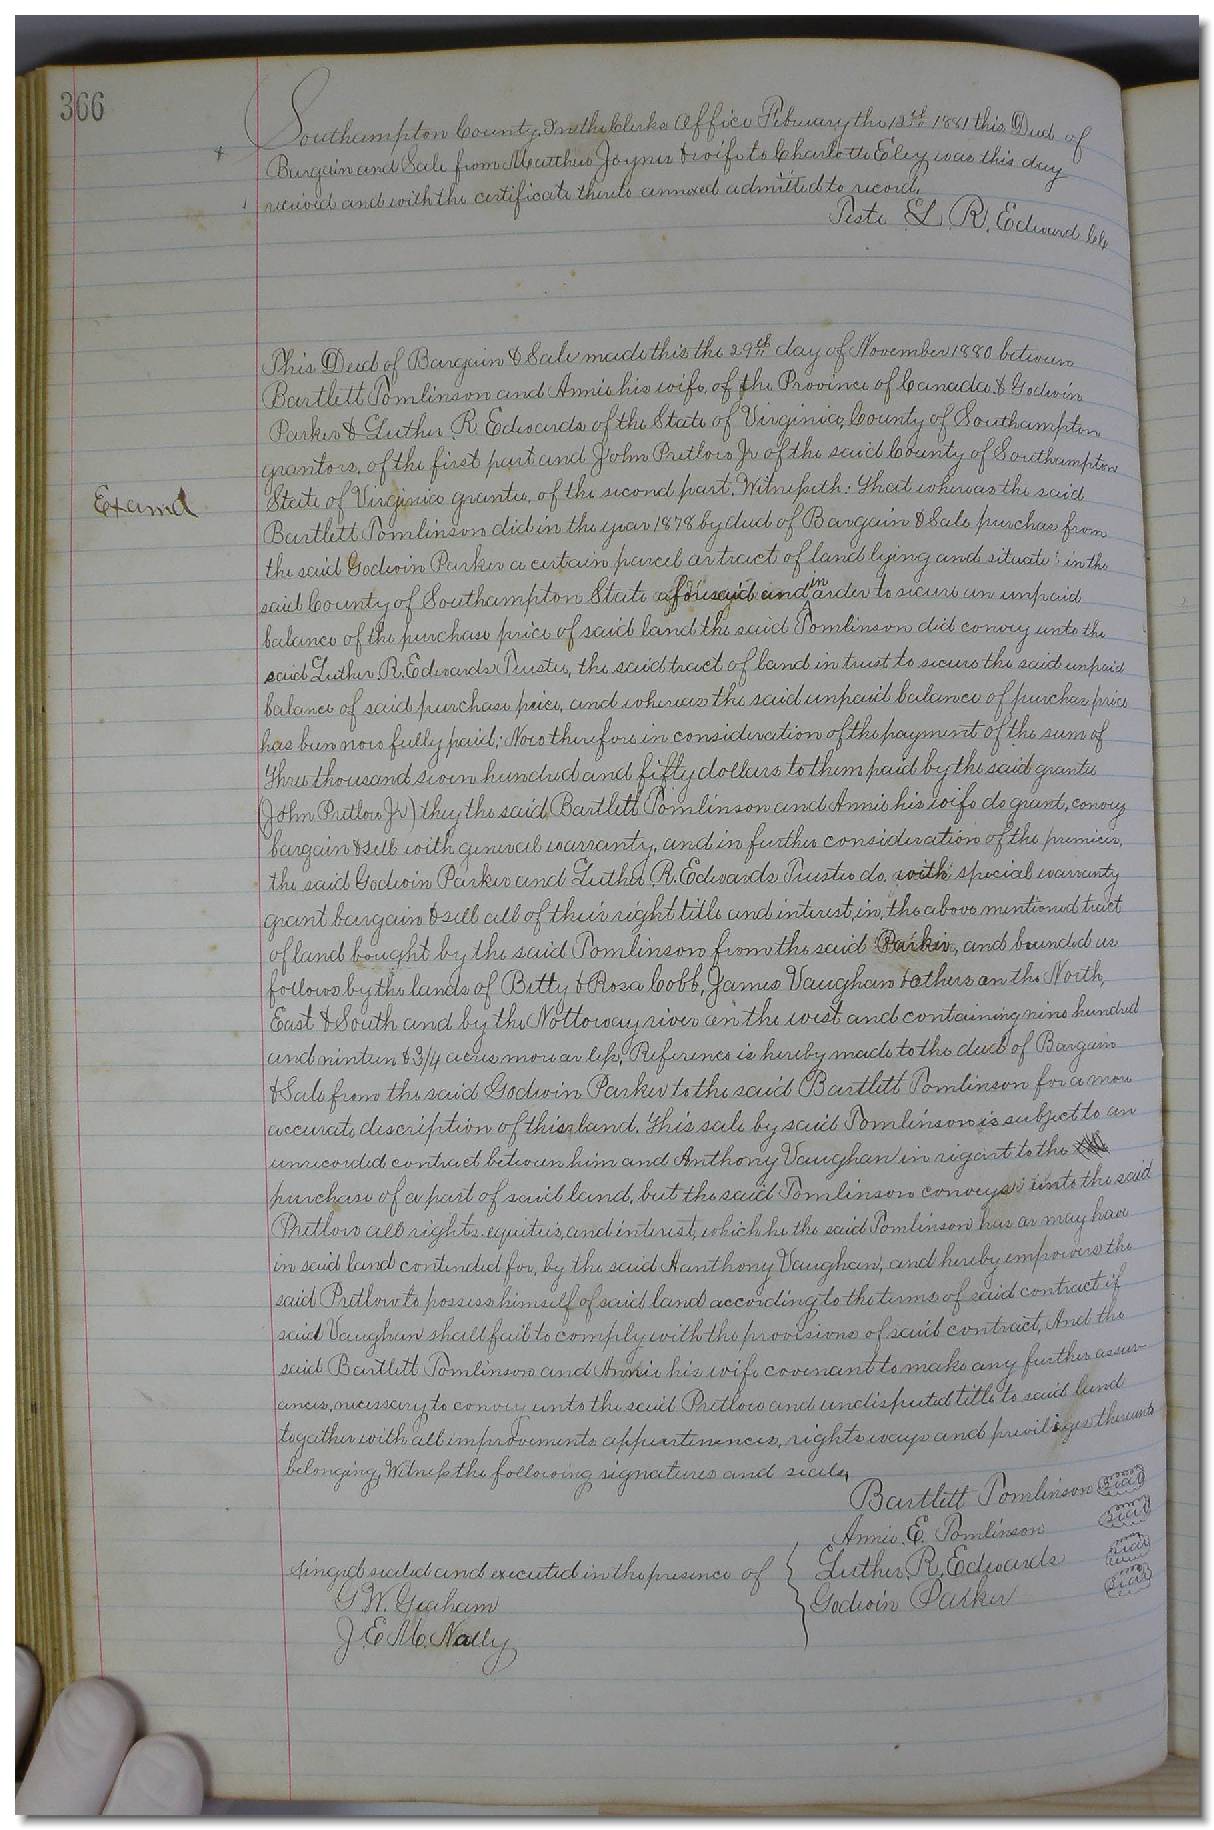 366
Southampton County, In the Clerks Office February the 12th 1881 this Deed of
Bargain and Sale from Matthew Joyner & wife to Charlotte Eley was this day
received and with the certificate thereto annexed admitted to record,
Teste L. R. Edward clk
This Deed of Bargain & Sale made this the 29th day of November 1880 between
Bartlett Tomlinson and Annie his wife, of the Province of Canada & Godwin
Parker & Luther R Edwards of the State of Virginia, County of Southampton
grantors, of the first part and John Pretlow Jr of the said County of Southampton
Examd
State of Virginia grantee, of the second part, Witnesseth: That whereas the said
Bartlett Tomlinson did in the year 1878 by deed of Bargain & Sale purchase from
the said Godwin Parker a certain parcel or tract of land lying and situate in the
said County of Southampton State aforesaid and in order to secure an unpaid
balance of the purchase price of said land the said Tomlinson did convey unto the
said Luther R. Edwards Trustee, the said tract of land in trust to secure the said unpaid
balance of said purchase price, and whereas the said unpaid balance of purchase price
has been now fully paid; Now therefore in consideration of the payment of the sum of
Three thousand seven hundred and fifty dollars to them paid by the said grantee
(John Pretlow Jr) they the said Bartlett Tomlinson and Annie his wife do grant, convey
bargain & sell with general warranty, and in further consideration of the premises,
the said Godwin Parker and Luther R. Edwards Trustee do, with special warranty
grant bargain & sell all of their right title and interest, in, the above mentioned tract
of land bought by the said Tomlinson from the said Parker, and bounded as
follows by the lands of Betty & Rosa Cobb, James Vaughan & others on the North,
East & South and by the Nottoway river on the west and containing nine hundred
and ninteen & 3/4 acres more or less, Reference is hereby made to the deed of Bargain
& Sale from the said Godwin Parker to the said Bartlett Tomlinson for a more
accurate description of this land. This sale by said Tomlinson is subject to an
unrecorded contract between him and Anthony Vaughan in regart to the
purchase of a part of said land, but the said Tomlinson conveys unto the said
Pretlow all rights, equities, and interest, which he the said Tomlinson has or may have
in said land contended for, by the said Aanthony Vaughan, and hereby empowers the
said Pretlow to possess himself of said land according to the terms of said contract if
said Vaughan shall fail to comply with the provisions of said contract, And the
said Bartlett Tomlinson and Annie his wife covenant to make any further assur-
ances, necessary to convey unto the said Pretlow and undisputed title to said land
together with all improvements appertinences, rights ways and priviliges thereunto
belonging, Witness the following signatures and seals,
Bartlett Tomlinson seal
Annie E. Tomlinson seal
Singed sealed and executed in the presence of Luther R. Edwards seal
G W. Graham Godwin Parker seal
J. E Mc Nally